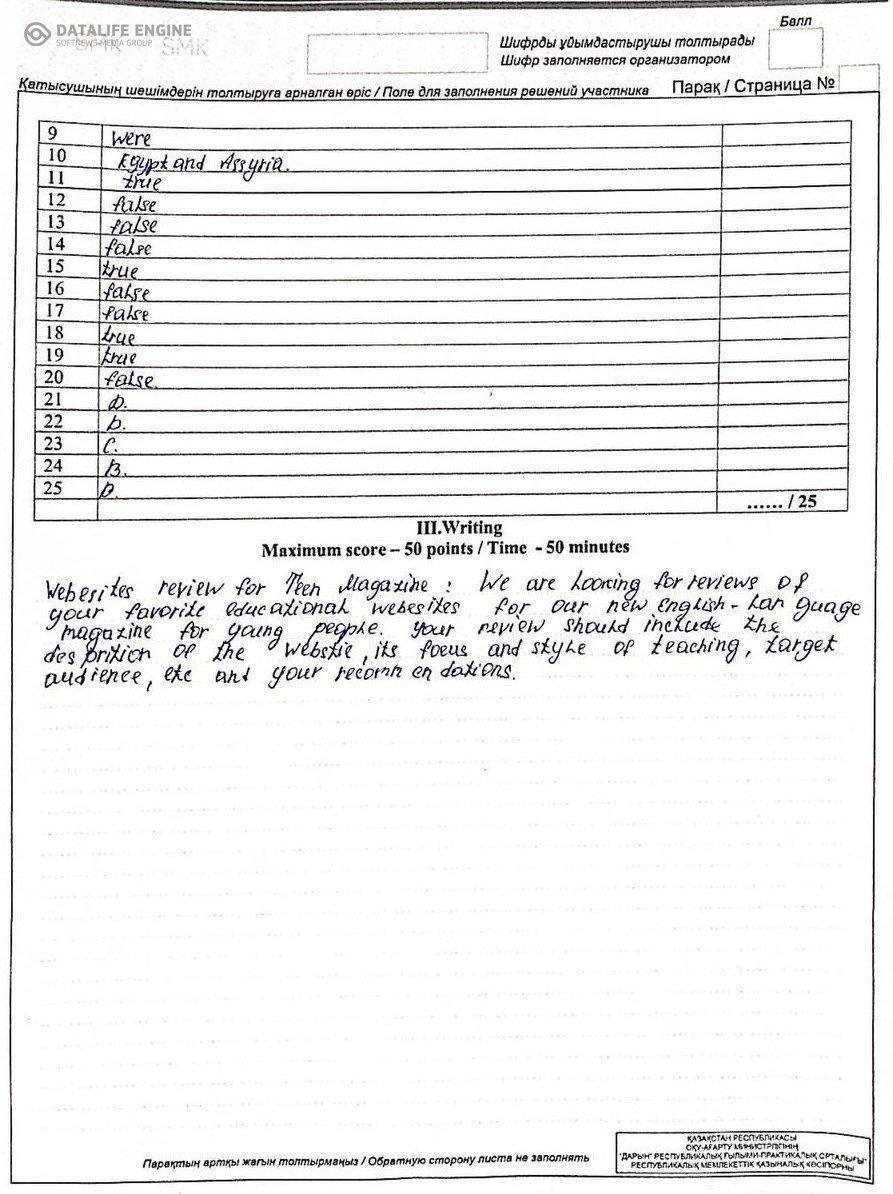 DATALIFE ENGINE
SOFTNEWS MEDIA GROUP SMK
Балл
Шифрды ұйымдастырушы толтырады
Шифр заполняется организатором
Қатысушының шешімдерін толтыруға арналған өріс / Поле для заполнения решений участника Парақ / Страница №
9 were
10 Egypt and Assyria.
11 true
12 false
13 false
14 false
15 true
16 false
17 false
18 true
19 true
20 false.
21 D.
22 b.
23 C.
24 B.
25 D.
...... / 25
III.Writing
Maximum score – 50 points / Time - 50 minutes
Webesites review for Teen Magazine : We are looking for reviews of
your favorite educational webesites for our new english - lan guage
magazine for young people. your review should include the
des prition of the webstie, its focus and style of teaching, target
audience, etc and your recomm en dations.
Парақтың артқы жағын толтырмаңыз / Обратную сторону листа не заполнять
ҚАЗАҚСТАН РЕСПУБЛИКАСЫ
ОҚУ-АҒАРТУ МИНИСТРЛІГІНІҢ
"ДАРЫН" РЕСПУБЛИКАЛЫҚ ҒЫЛЫМИ-ПРАКТИКАЛЫҚ ОРТАЛЫҒЫ"
РЕСПУБЛИКАЛЫҚ МЕМЛЕКЕТТІК ҚАЗЫНАЛЫҚ КӘСІПОРНЫ